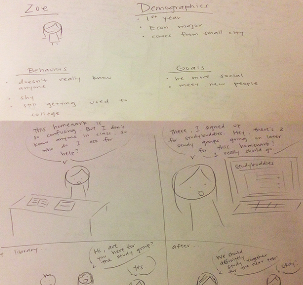 Zoe
Demographics
1st year
Econ major
comes from small city
Behaviors
doesn't really know
anyone
shy
still getting used to
college
Goals
be more social
meet new people
This homework is
so confusing. But I don't
know anyone in class, so
who do I ask for
help?
There, I signed up
for studybuddies. Hey, there's a
study group going on later
for this homework!
I really should go
studybuddies
library
Hi, are
you here for
the study group?
Yes
after
We should
definitely
study together